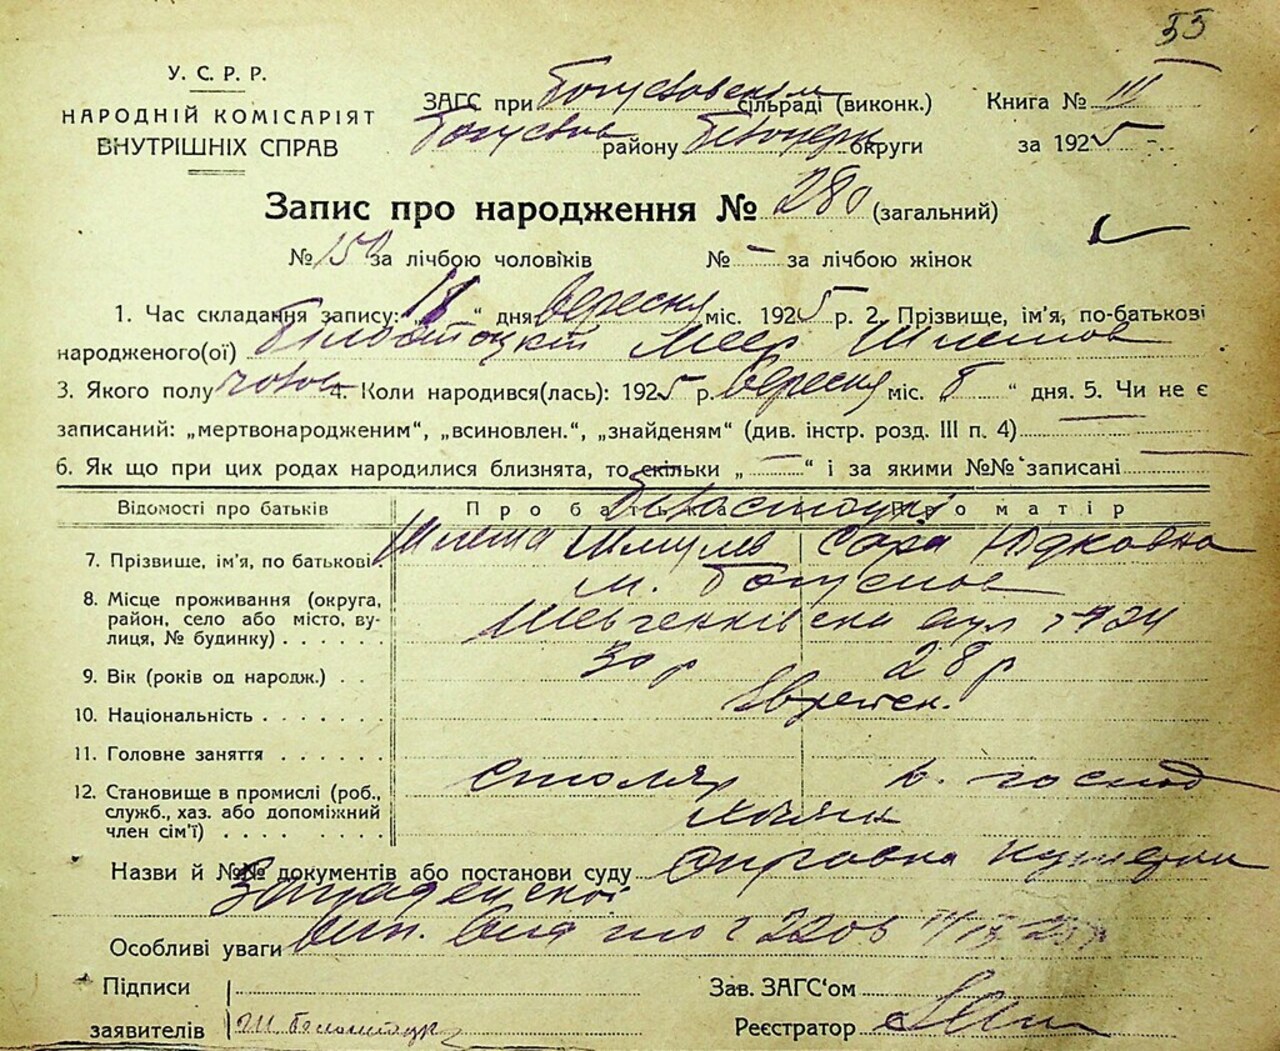 55
У. С. Р. Р.
НАРОДНІЙ КОМІСАРІЯТ
ВНУТРІШНІХ СПРАВ
ЗАГС при Богуславськім сільраді (виконк.) Книга № III
Богуслав району Білоцерк округи за 1925
Запис про народження № 280 (загальний)
№ 150 за лічбою чоловіків № – за лічбою жінок
1. Час складання запису: „18“ дня вересня міс. 1925 р. 2. Прізвище, ім'я, по-батькові
народженого(ої) Білостоцкій Меер Шлемов
3. Якого полу чолов 4. Коли народився(лась): 1925 р. вересня міс. „8“ дня. 5. Чи не є
записаний: „мертвонародженим“, „всиновлен.“, „знайденям“ (див. інстр. розд. III п. 4) –
6. Як що при цих родах народилися близнята, то скільки „ – “ і за якими №№ записані –
Відомості про батьків Про батька Про матір
Білостоцкі
7. Прізвище, ім'я, по батькові Шлема Шмулев Сара Юдковна
8. Місце проживання (округа, район, село або місто, вулиця, № будинку) м. Богуслав
Шевченківська вул № 24
9. Вік (років од народж.) 30 р 28 р
10. Національність Єврейск.
11. Головне заняття
12. Становище в промислі (роб., служб., хаз. або допоміжний член сім'ї) столяр д. господ
хазяїн
Назви й №№ документів або постанови суду
Особливі уваги
Підписи
заявителів Ш. Белостоцкі
Зав. ЗАГС'ом
Реєстратор